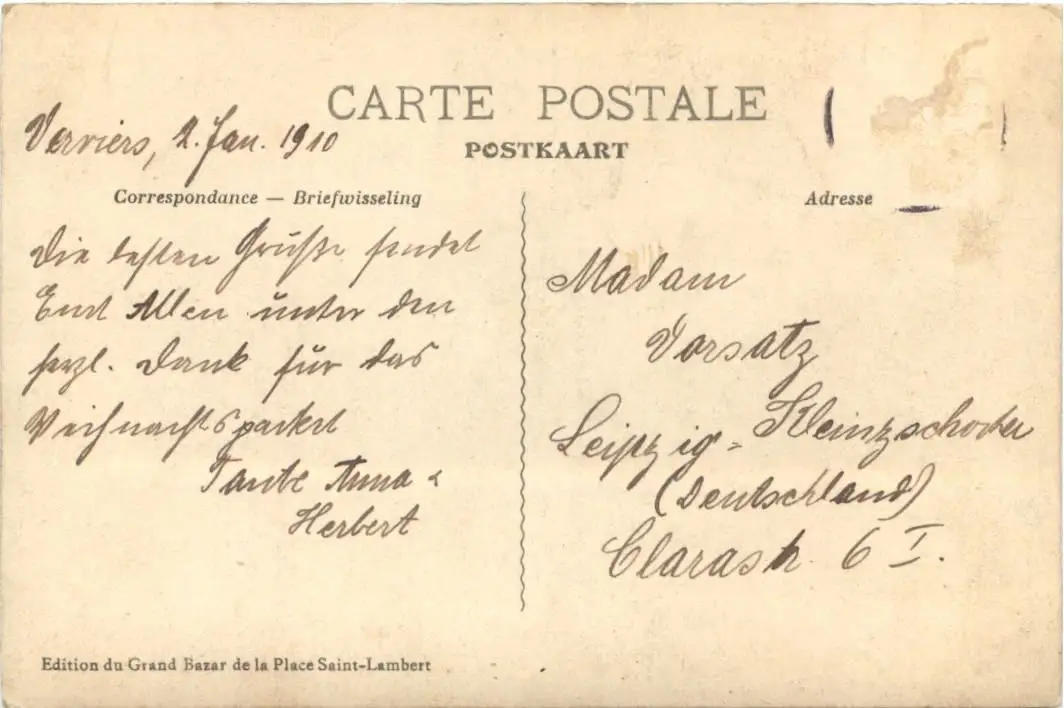 CARTE POSTALE
POSTKAART
Verviers, 2. Jan. 1910
Correspondance — Briefwisseling
Die besten Grüße sendet
Euch Allen unter dem
herzl. Dank für das
Weihnachtspacket
Tante Anna &
Herbert
Edition du Grand Bazar de la Place Saint-Lambert
Adresse
Madam
Vorsatz
Leipzig-Kleinzschocher
(Deutschland)
Clarastr. 6 I.